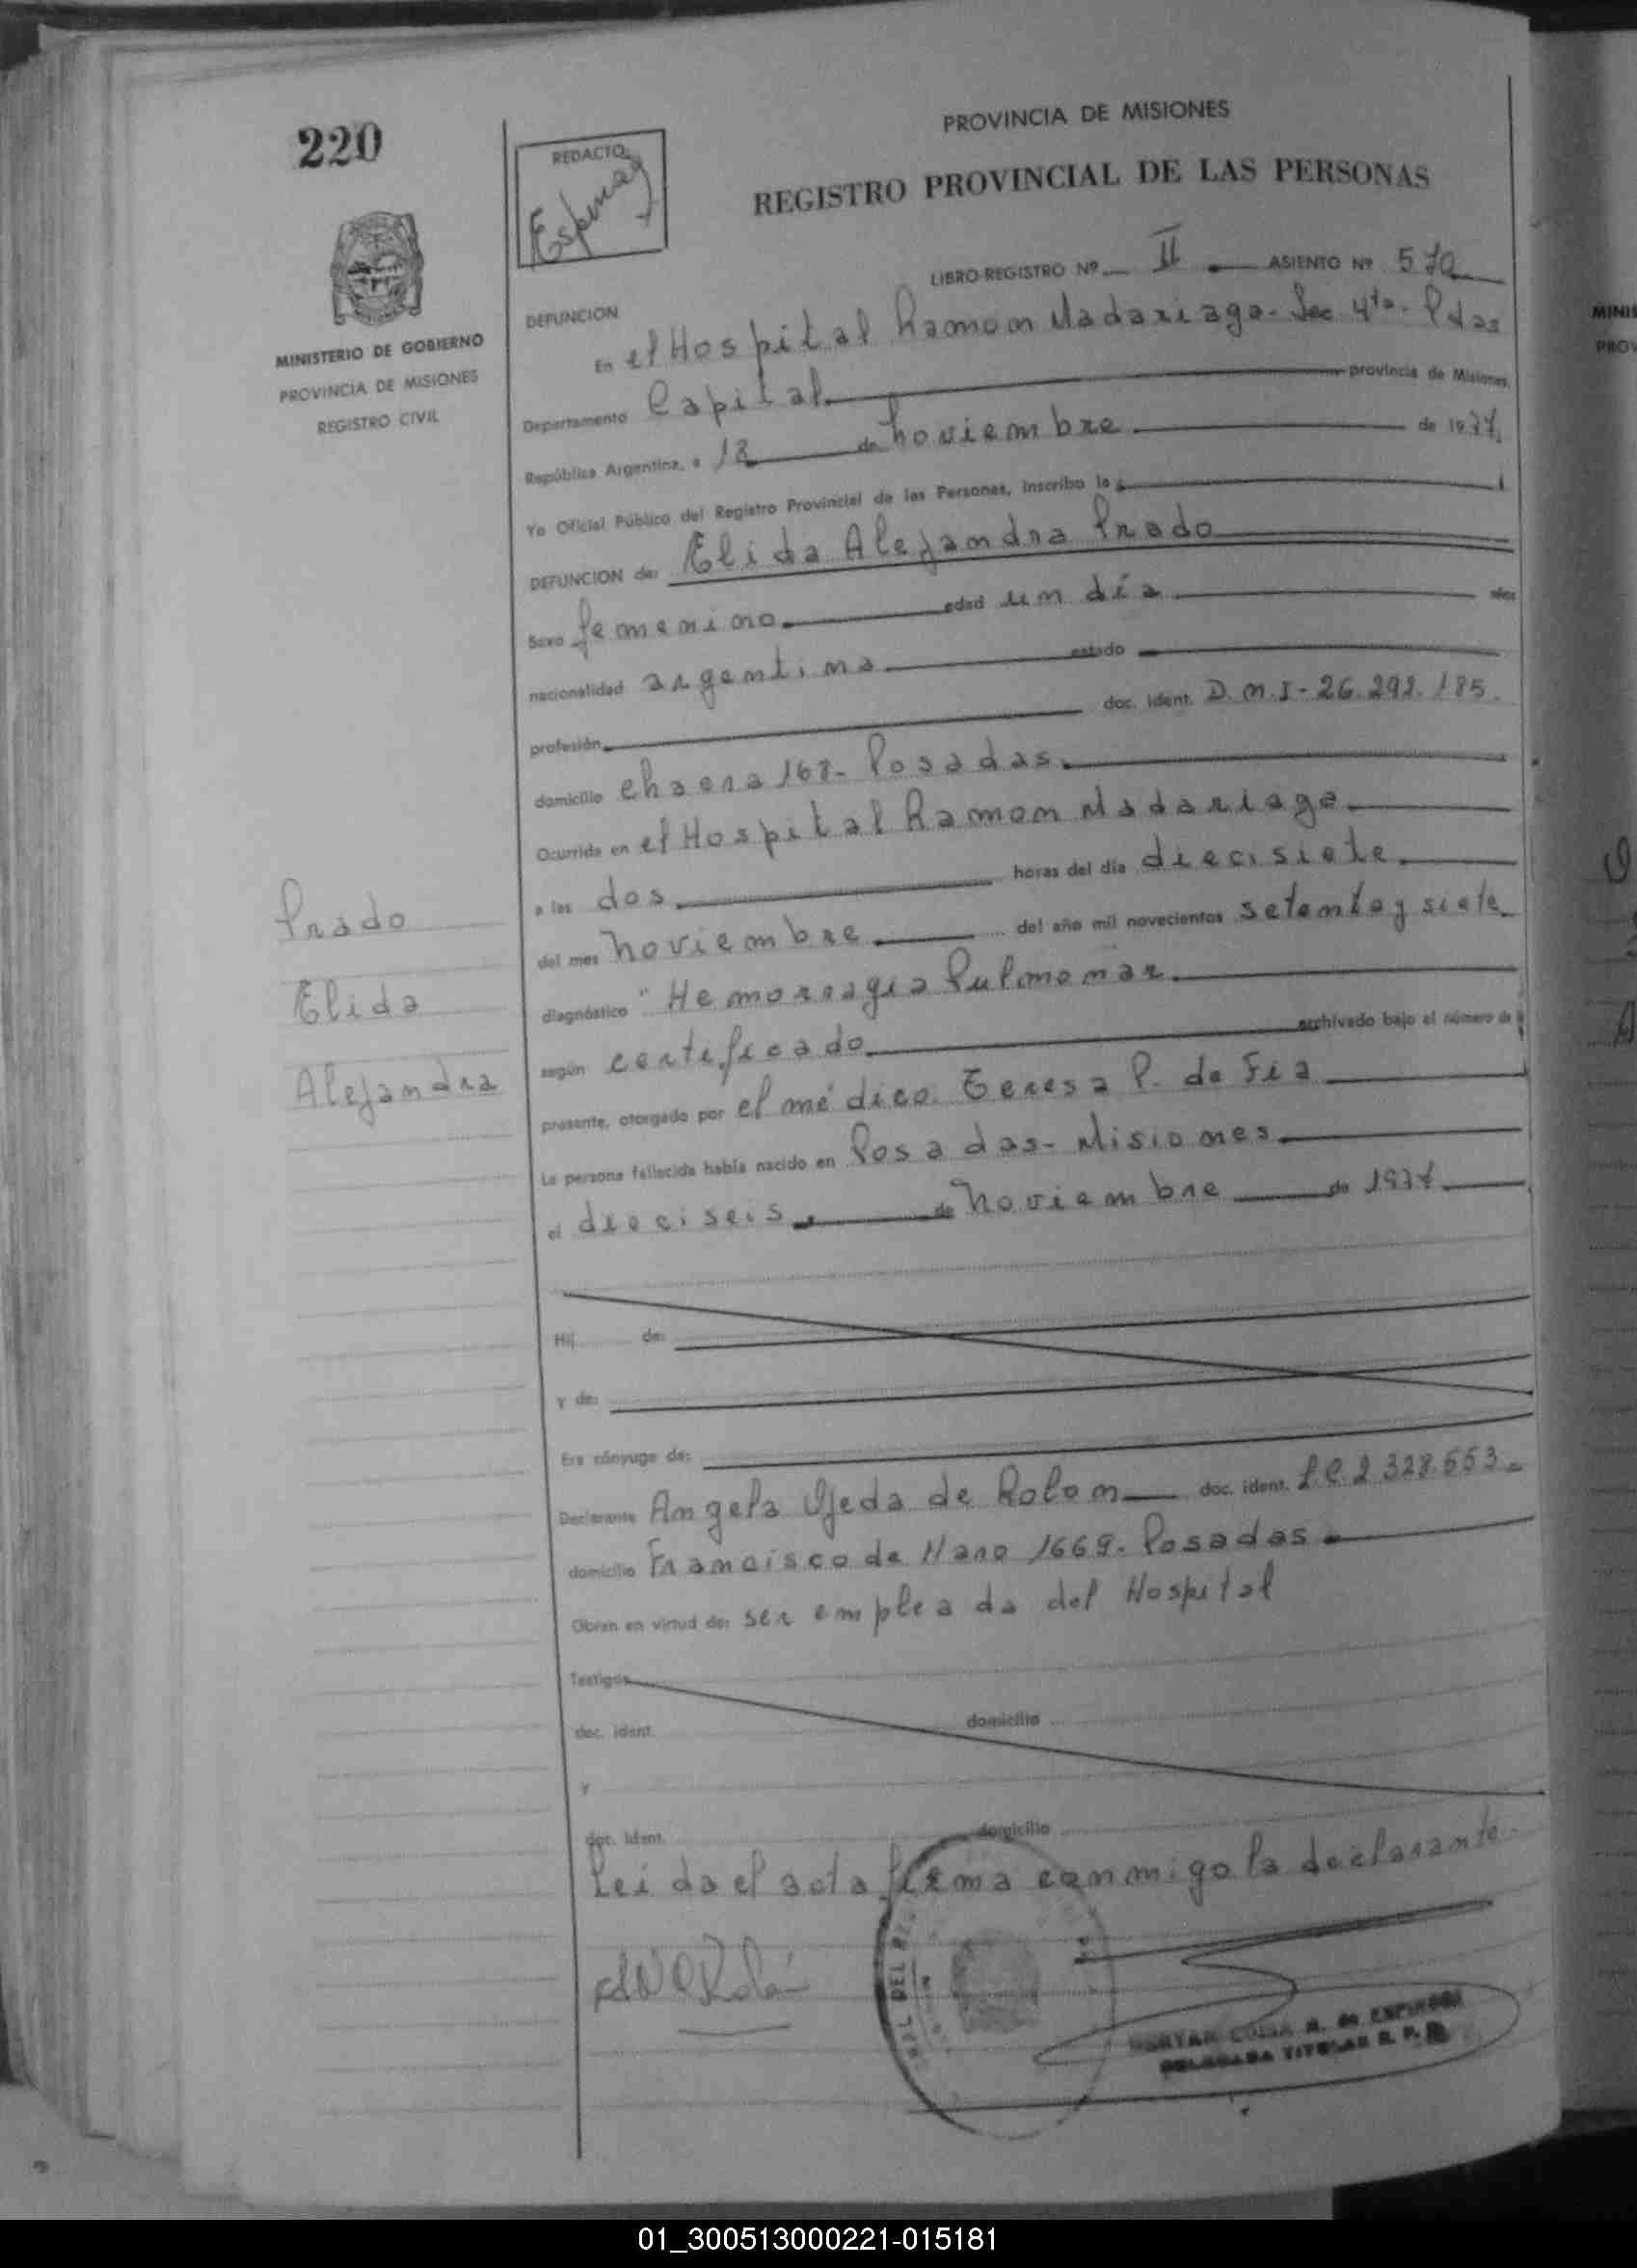 220
REDACTO
Espinoza
PROVINCIA DE MISIONES
REGISTRO PROVINCIAL DE LAS PERSONAS
LIBRO-REGISTRO Nº II ASIENTO Nº 570
MINISTERIO DE GOBIERNO
PROVINCIA DE MISIONES
REGISTRO CIVIL
DEFUNCION
En el Hospital Ramon Madariaga - Sec 4ta - Pdas
Departamento Capital provincia de Misiones,
República Argentina, a 18 de noviembre de 1977,
Yo Oficial Público del Registro Provincial de las Personas, inscribo la
DEFUNCION de: Elida Alejandra Prado
Sexo femenino edad un día años
nacionalidad argentina estado
profesión doc. ident. D.N.I - 26.292.185.
domicilio chacra 168 - Posadas
Ocurrida en el Hospital Ramon Madariaga
a las dos horas del día diecisiete
del mes noviembre del año mil novecientos setenta y siete
diagnóstico " Hemorragia Pulmonar
según certificado archivado bajo el número de
presente, otorgado por el médico. Teresa P. de Fia
La persona fallecida había nacido en Posadas - Misiones
el dieciseis de noviembre de 1977
Prado
Elida
Alejandra
Hij de:
y de:
Era cónyuge de:
Declarante Angela Ojeda de Rolon doc. ident. L.C. 2.328.553
domicilio Francisco de Haro 1669 - Posadas
Obran en virtud de: ser empleada del Hospital
Testigos
doc. ident. domicilio
y
doc. ident. domicilio
Leida el acta firma conmigo la declarante
Rolón
LUISA R. de ESPINOSA
DELEGADA TITULAR R. P. P.
MINIS
PROV
01_300513000221-015181